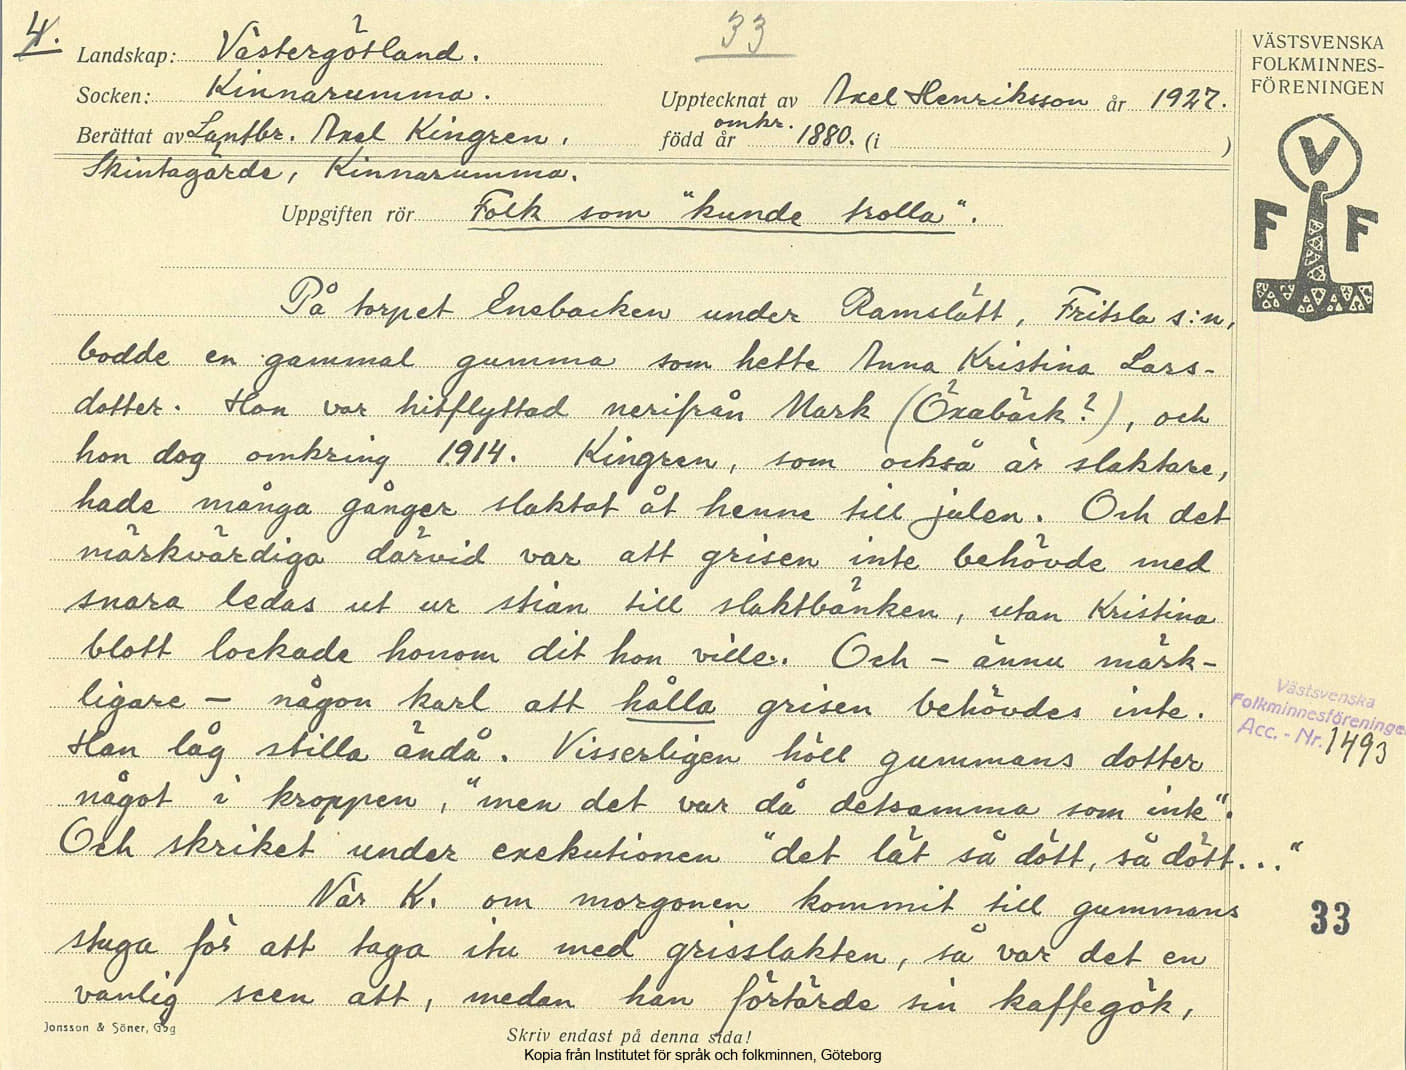 4.
33
Landskap: Västergötland.
Socken: Kinnarumma.
Upptecknat av Axel Henriksson år 1927.
Berättat av Lantbr. Axel Kingren,
född år omkr. 1880. (i )
Skintagärde, Kinnarumma.
Uppgiften rör Folk som "kunde trolla".
VÄSTSVENSKA
FOLKMINNES-
FÖRENINGEN
V
F F
På torpet Enebacken under Ramslätt, Fritsla s:n,
bodde en gammal gumma som hette Anna Kristina Lars-
dotter. Hon var hitflyttad nerifrån Mark (Öxabäck?), och
hon dog omkring 1914. Kingren, som också är slaktare,
hade många gånger slaktat åt henne till julen. Och det
märkvärdiga därvid var att grisen inte behövde med
snara ledas ut ur stian till slaktbänken, utan Kristina
blott lockade honom dit hon ville. Och – ännu märk-
ligare – någon karl att hålla grisen behövdes inte.
Han låg stilla ändå. Visserligen höll gummans dotter
något i kroppen, "men det var då detsamma som inte".
Och skriket under exekutionen "det lät så dött, så dött..."
När K. om morgonen kommit till gummans
stuga för att taga itu med grisslakten, så var det en
vanlig scen att, medan han förtärde sin kaffegök,
Västsvenska
Folkminnesföreningen
Acc. - Nr. 1493
33
Jonsson & Söner, Gbg
Skriv endast på denna sida!
Kopia från Institutet för språk och folkminnen, Göteborg